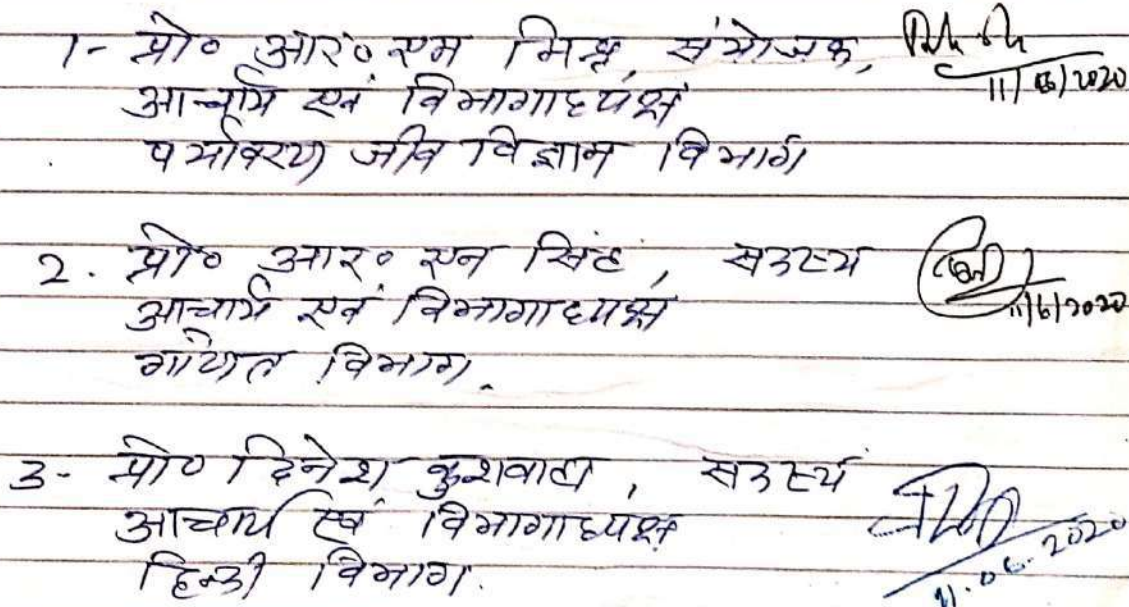 1- प्रो० आर० एम मिश्र, संयोजक, 11/06/2020
आचार्य एवं विभागाध्यक्ष
पर्यावरण जीव विज्ञान विभाग
2. प्रो० आर० एन सिंह, सदस्य 11/6/2020
आचार्य एवं विभागाध्यक्ष
गणित विभाग.
3- प्रो० दिनेश कुशवाह, सदस्य 11.06.2020
आचार्य एवं विभागाध्यक्ष
हिन्दी विभाग.